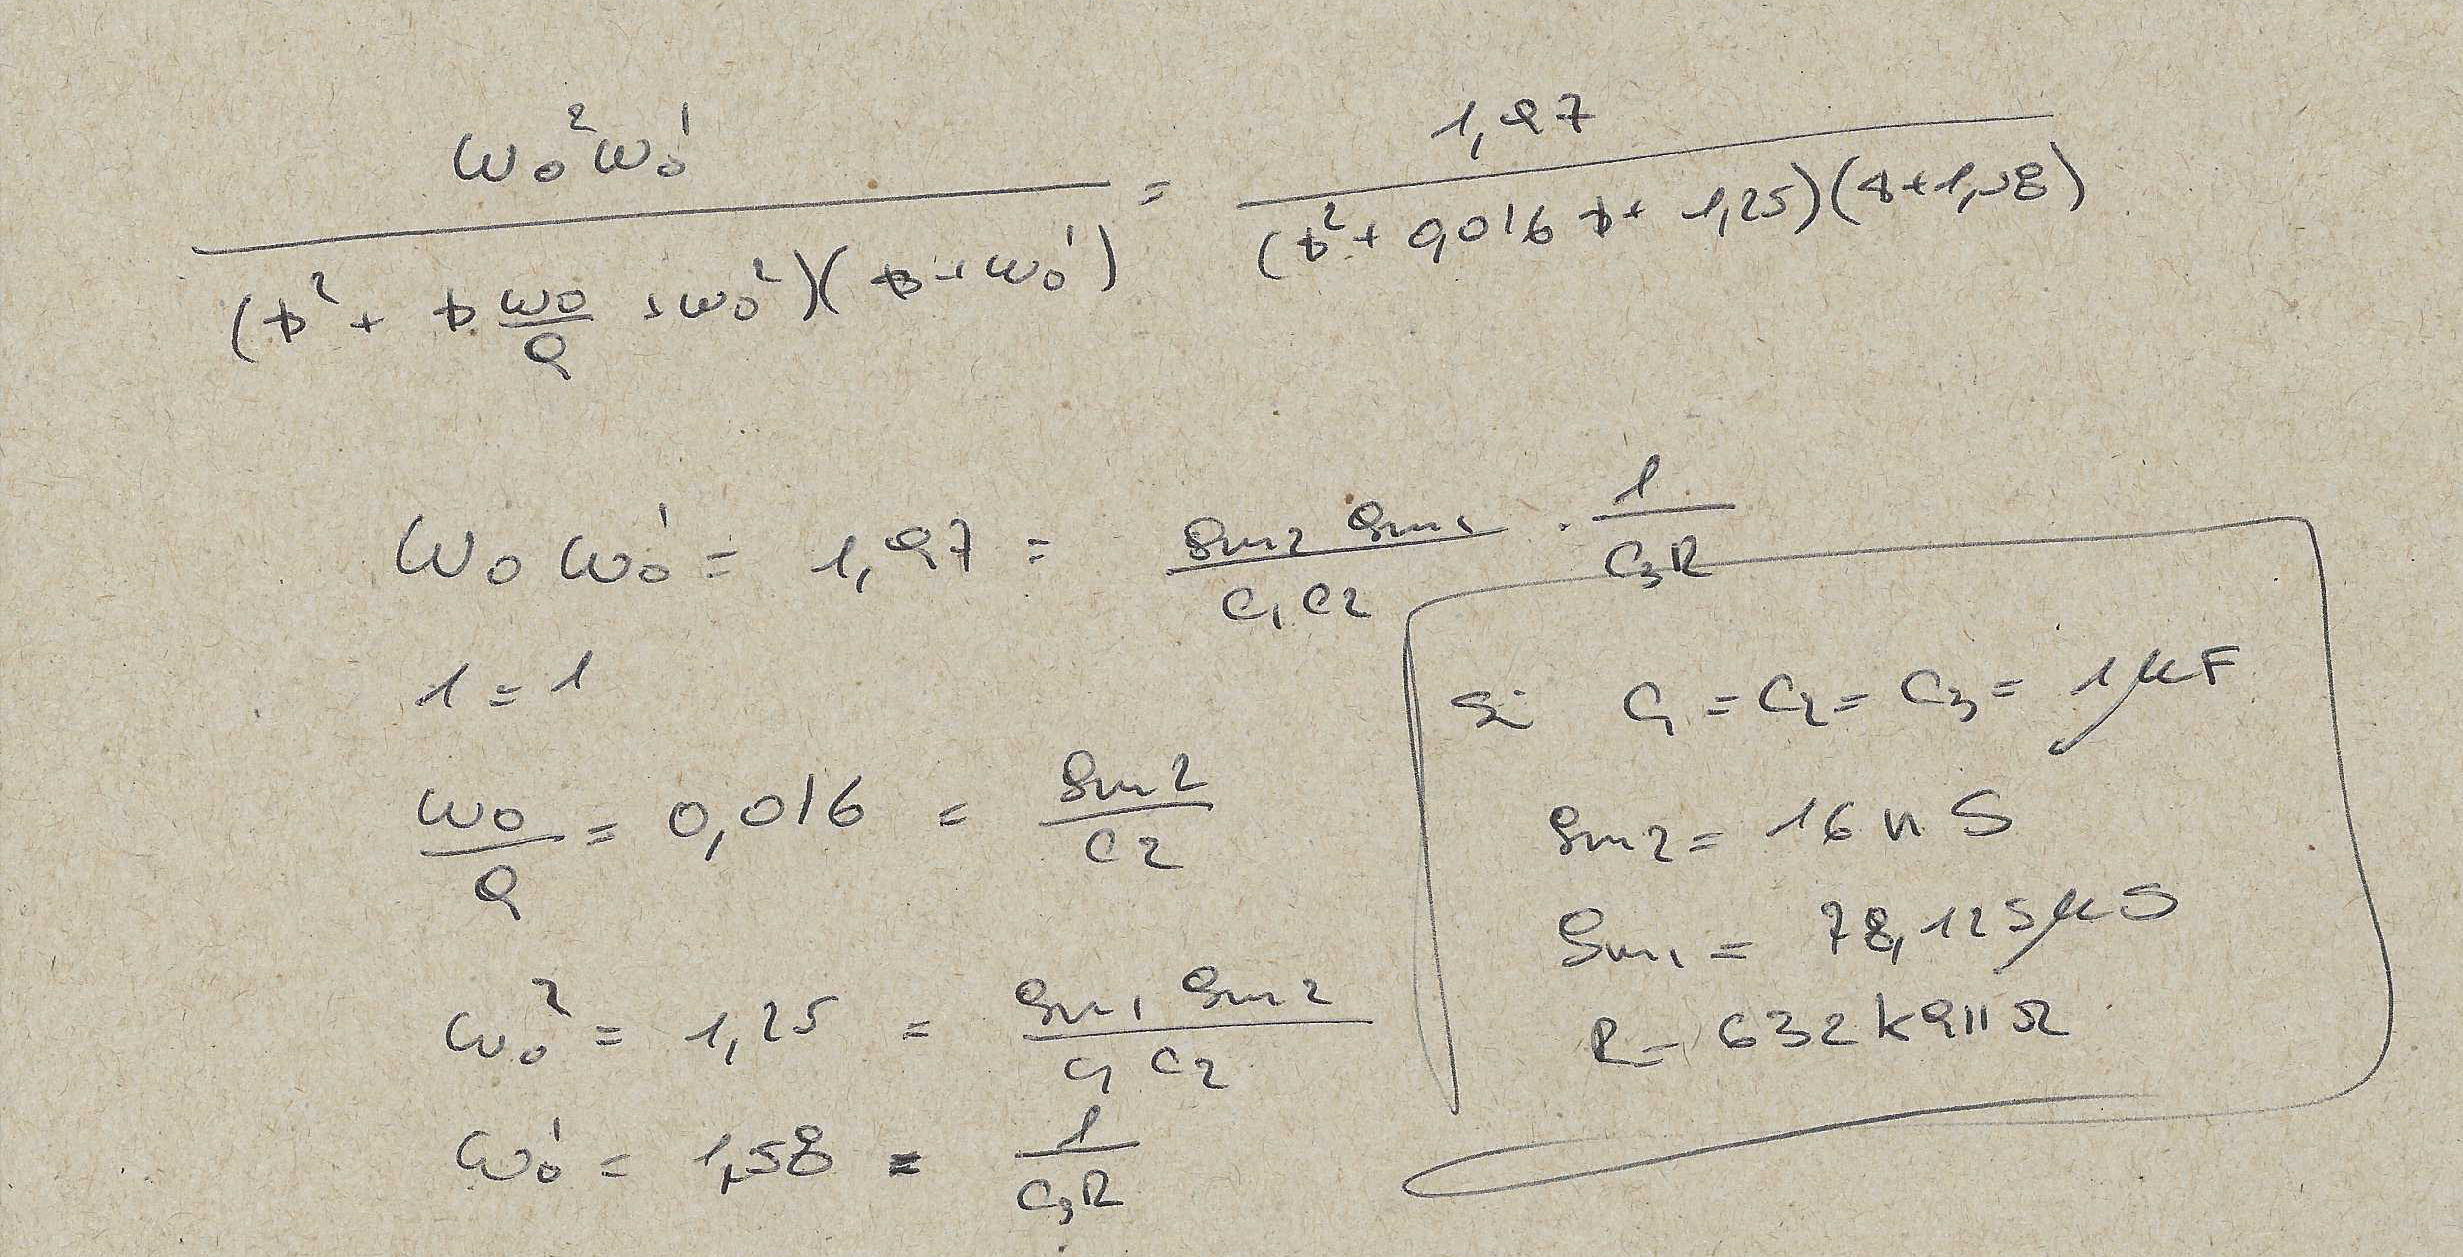 ω₀²ω₀' / ((s² + s ω₀/Q + ω₀²)(s + ω₀')) = 1,97 / ((s² + 0,016 s + 1,25)(s + 1,58))
ω₀ ω₀' = 1,97 = gm2 gm1 / (C1 C2) · 1 / (C3R)
1 = 1
ω₀ / Q = 0,016 = gm2 / C2
ω₀² = 1,25 = gm1 gm2 / (C1 C2)
ω₀' = 1,58 = 1 / (C3R)
Si C1 = C2 = C3 = 1 μF
gm2 = 16 nS
gm1 = 78,125 μS
R = 632 k911 Ω